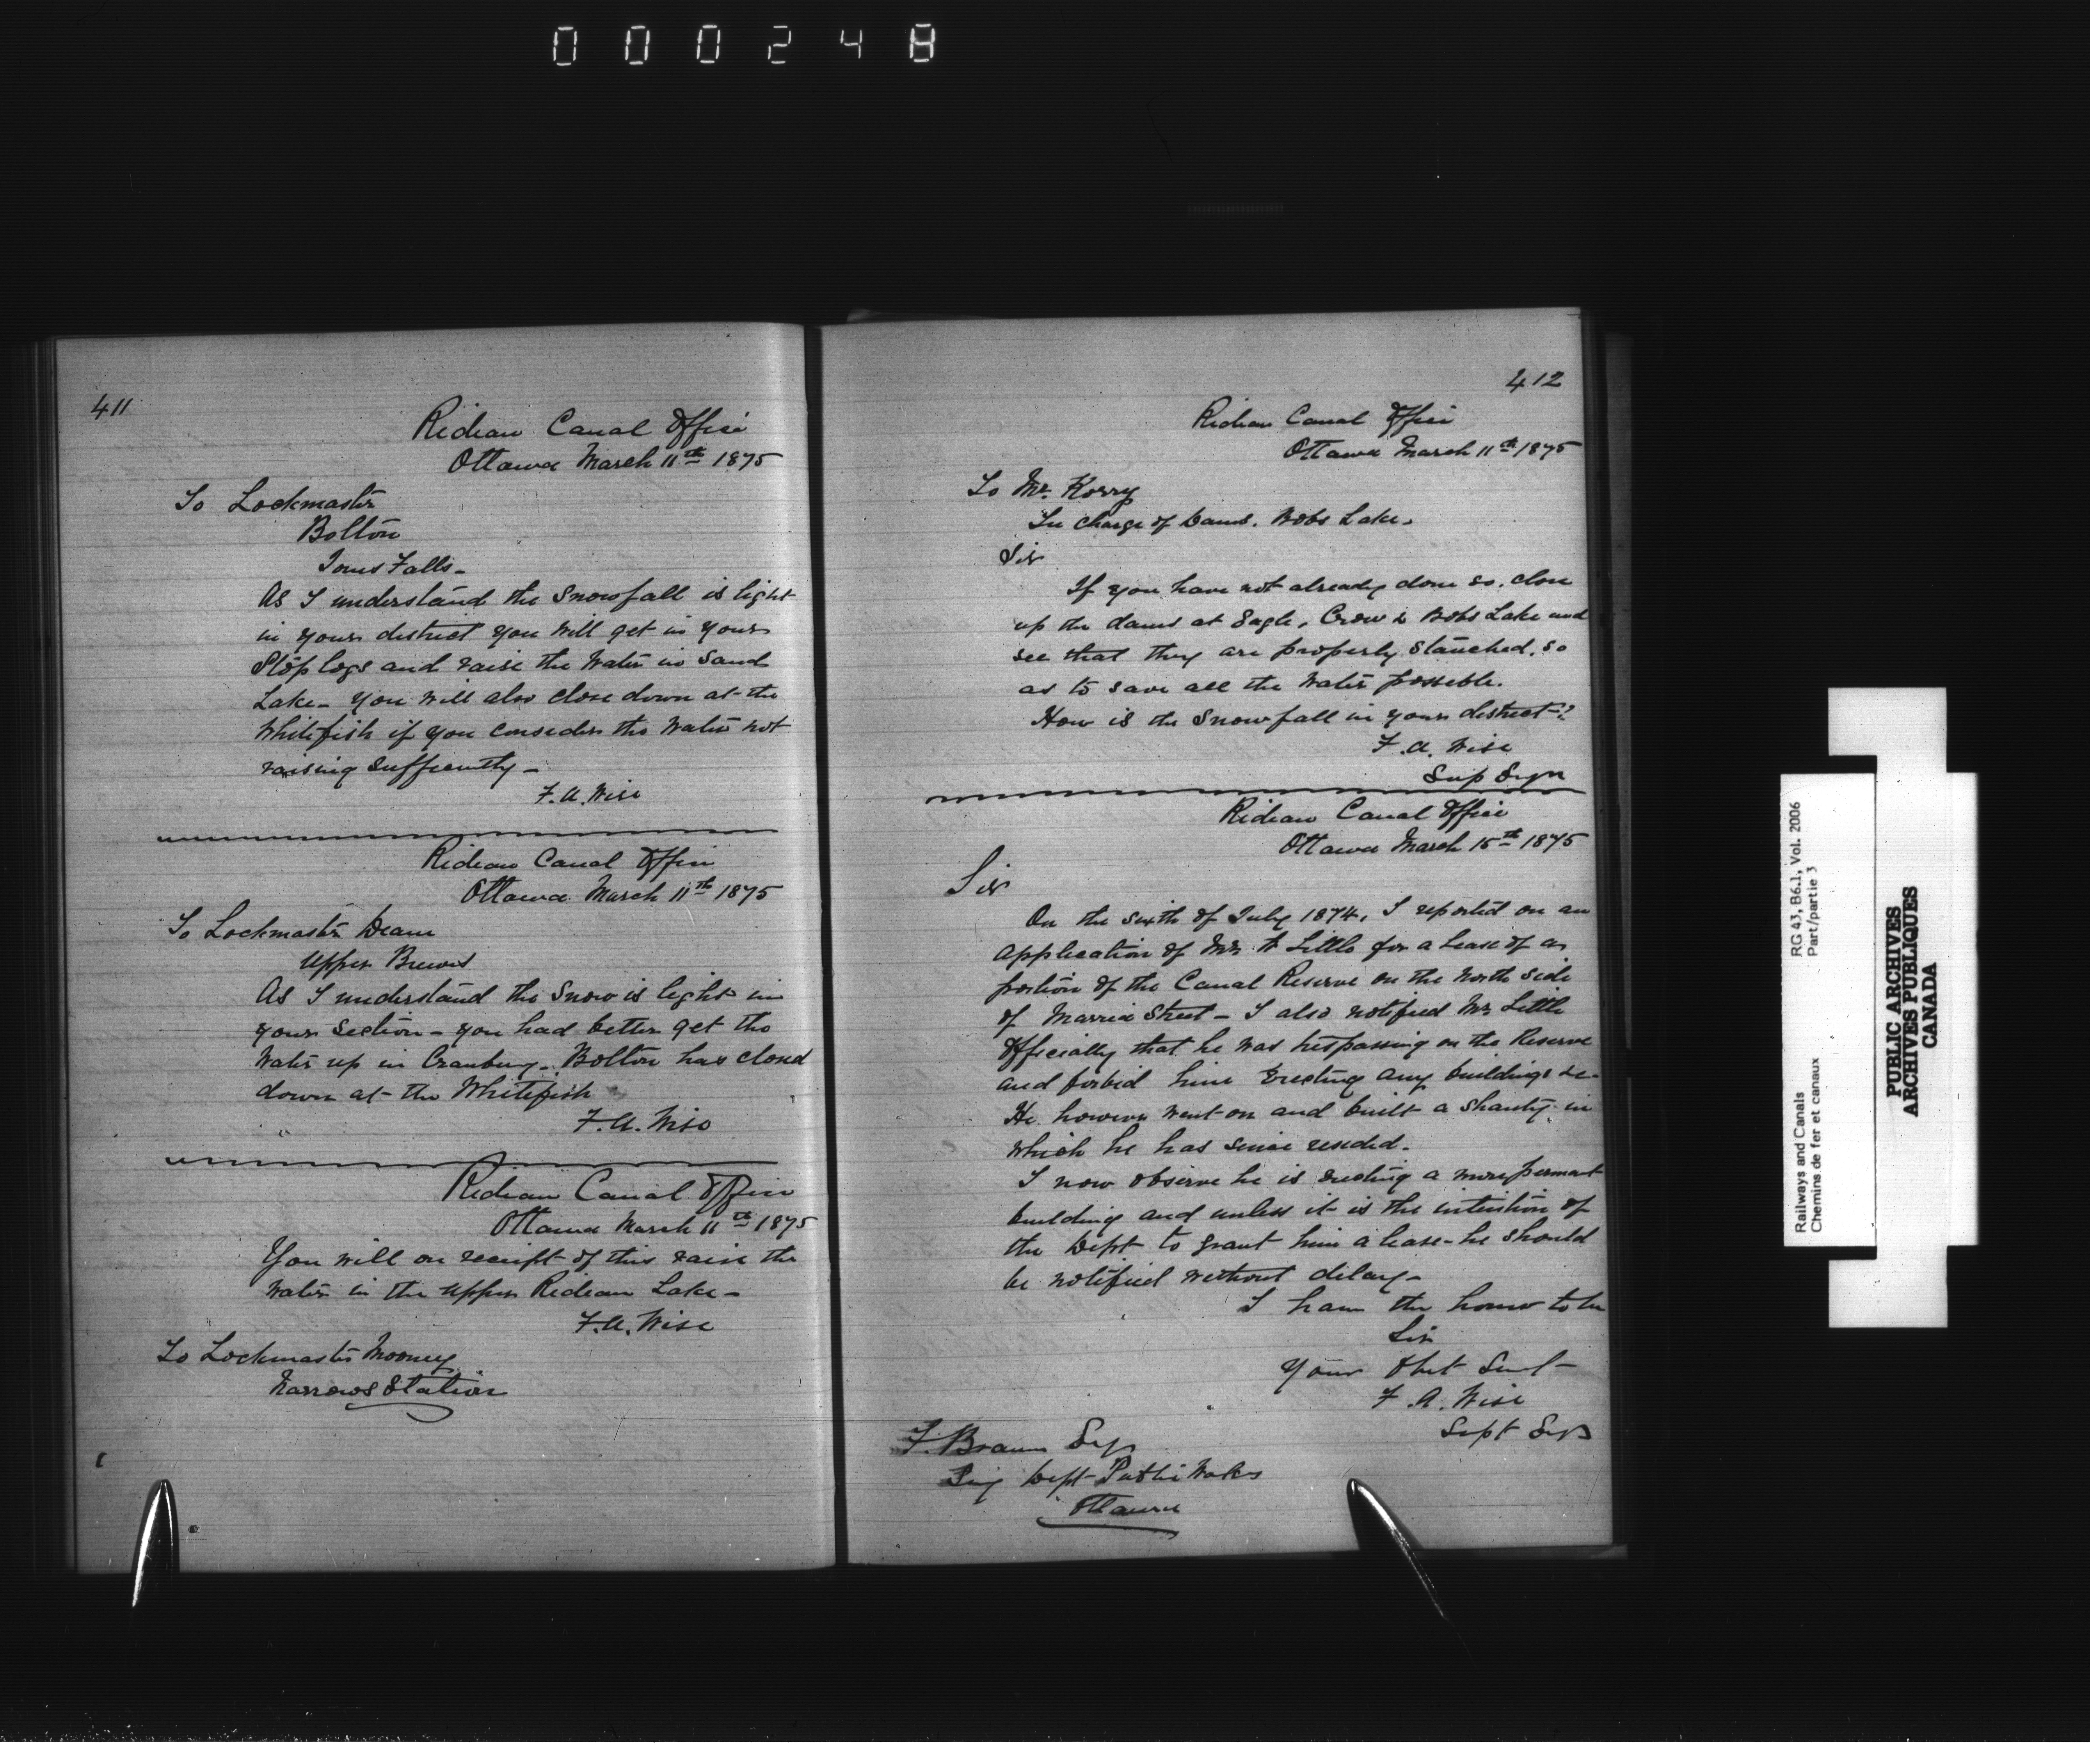 000248
411
Rideau Canal Office
Ottawa March 11th 1875
To Lockmaster
Bolton
Jones Falls -
As I understand the Snowfall is light
in your district you will get in your
Stop logs and raise the Water in Sand
Lake - you will also close down at the
Whitefish if you consider the Water not
raising sufficiently -
F.A. Wise
Rideau Canal Office
Ottawa March 11th 1875
To Lockmaster Deane
Upper Brewers
As I understand the Snow is light in
your Section - you had better get the
Water up in Cranberry - Bolton has closed
down at the Whitefish
F.A. Wise
Rideau Canal Office
Ottawa March 11th 1875
You will on receipt of this raise the
Water in the Upper Rideau Lake -
F.A. Wise
To Lockmaster Mooney
Narrows Station
412
Rideau Canal Office
Ottawa March 11th 1875
To Mr. Korry
In charge of Dams. Bobs Lake.
Sir
If you have not already done so, close
up the dams at Eagle, Crow & Bobs Lake and
see that they are properly Stanched, so
as to save all the Water possible.
How is the Snowfall in your district?
F.A. Wise
Sup Eng
Rideau Canal Office
Ottawa March 15th 1875
Sir
On the sixth of July 1874, I reported on an
application of Mr. Little for a Lease of a
portion of the Canal Reserve on the North side
of Maria Street - I also notified Mr Little
Officially that he was trespassing on the Reserve
and forbid him Erecting any buildings &c.
He however went on and built a Shanty in
which he has since resided.
I now observe he is erecting a more permant
building and unless it is the intention of
the Dept to grant him a lease - he should
be notified without delay -
I have the honor to be
Sir
Your Obet Servt
F.A. Wise
Supt Eng
F. Braun Esq
Dept Public Works
Ottawa
Railways and Canals
Chemins de fer et canaux
RG 43, B6.1, Vol. 2006
Part/partie 3
PUBLIC ARCHIVES
ARCHIVES PUBLIQUES
CANADA